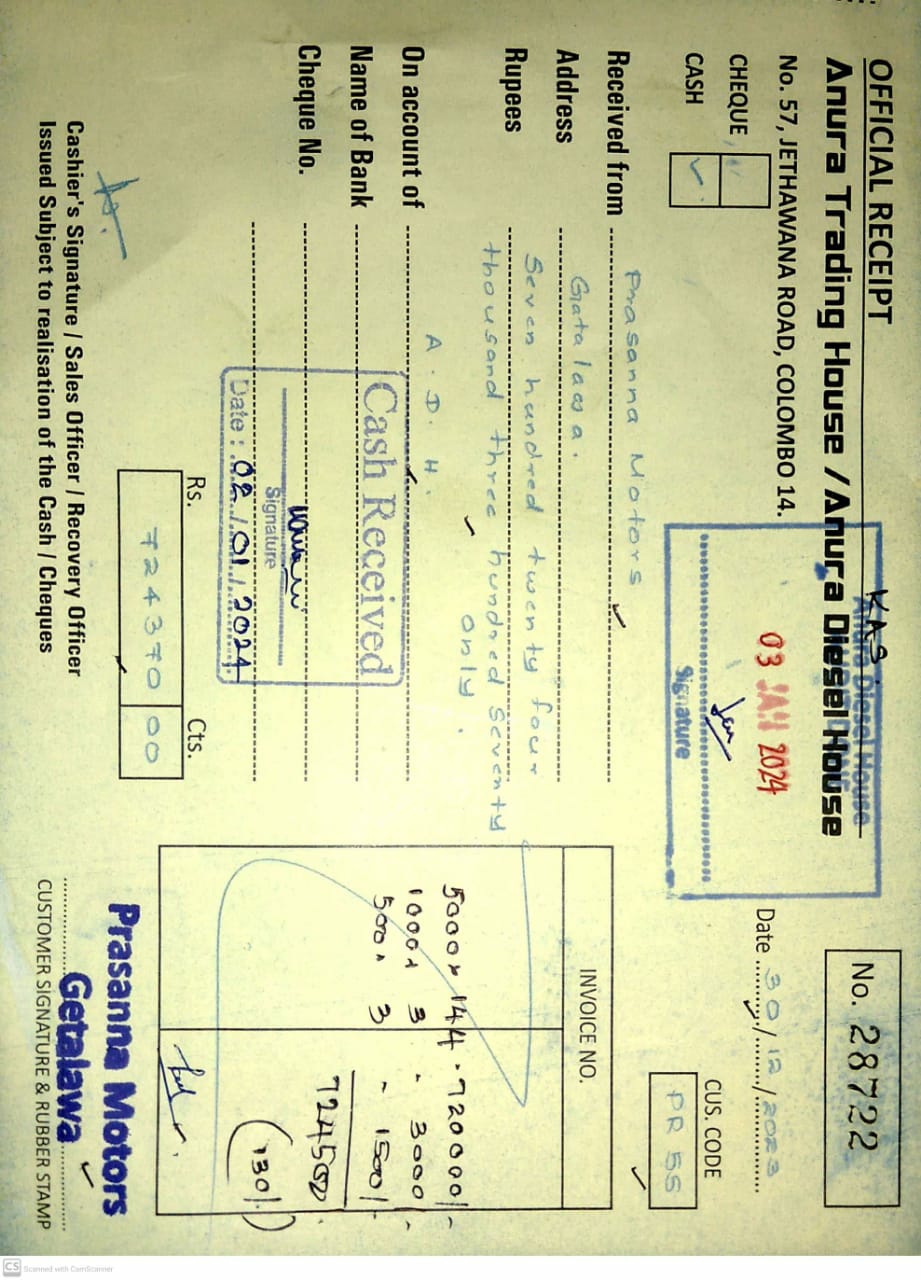 OFFICIAL RECEIPT
Anura Trading House / Anura Diesel House
No. 57, JETHAWANA ROAD, COLOMBO 14.
KAS
Anura Diesel House
03 JAN 2024
Signature
No. 28722
Date 30/12/2023
CHEQUE
CASH ✓
CUS. CODE
PR 55
Received from Prasanna Motors
Address Gatalawa.
Rupees Seven hundred twenty four
thousand three hundred seventy
only.
On account of A. D. H.
Name of Bank
Cheque No.
Cash Received
Signature
Date : 02/01/2024
INVOICE NO.
5000x 144 - 720000/-
1000x 3 - 3000/-
500x 3 - 1500/-
724500
(130/)
Rs. Cts.
724370 00
Cashier's Signature / Sales Officer / Recovery Officer
Issued Subject to realisation of the Cash / Cheques
Prasanna Motors
Getalawa
CUSTOMER SIGNATURE & RUBBER STAMP
CS Scanned with CamScanner